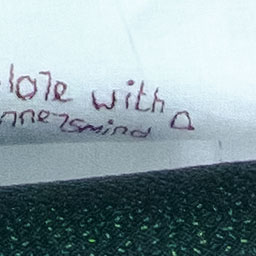 lore with a
nnersmind